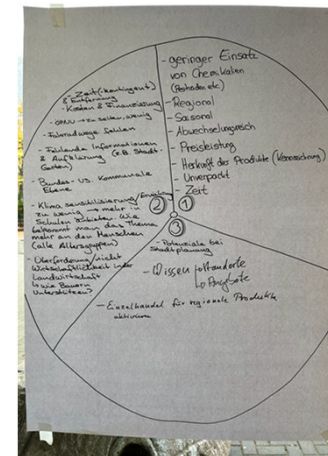 - geringer Einsatz
von Chemikalien
(Pestiziden etc)
- Regional
- Saisonal
- Abwechslungsreich
- Preisleistung
- Herkunft der Produkte (Kennzeichnung)
- Unverpackt
- Zeit
①
- Zeit(kontingent)
& Entfernung
- Kosten & Finanzierung
- ÖPNV → zu selten, wenig
- Fahrradwege fehlen
- Fehlende Informationen
& Aufklärung (z.B. Stadt-
Garten)
- Bundes- vs. Kommunale
Ebene
- Klima sensibilisierung/
zu wenig → mehr in
Schulen anbieten. Wie
bekommt man das Thema
mehr an den Menschen
(alle Altersgruppen)
- Überforderung/nicht
Wirtschaftlichkeit in der
Landwirtschaft
↳ wie Bauern
Unterstützen?
②
③
- Potenziale bei
Stadtplanung
- Wissen
↳ Angebote
- Einzelhandel für regionale Produkte
aktivieren